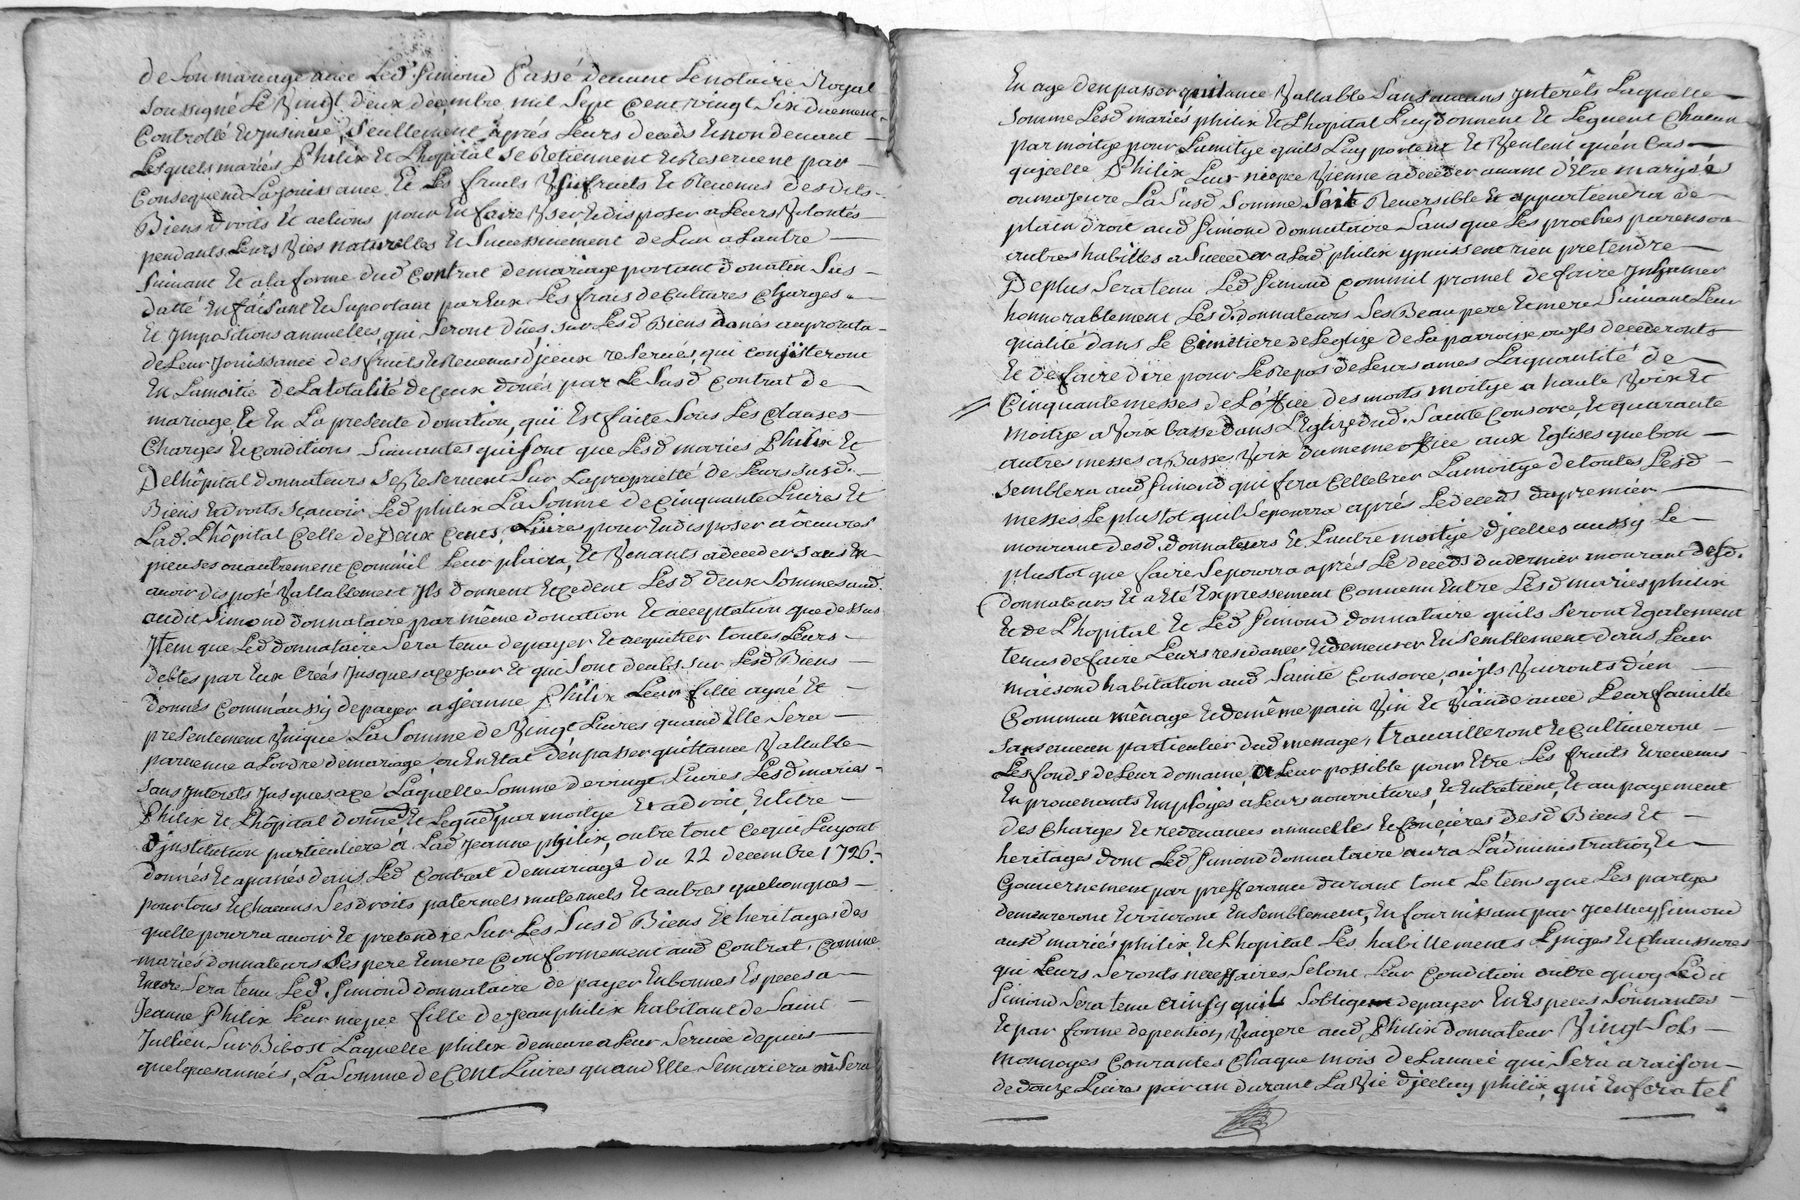 de Son mariage avec Led. Simond Passé devant Le notaire Royal
soussigné Le Vingt deux decembre mil Sept Cent vingt Six duement
Controllé et Insinué, Seullement aprés Leurs deceds et non devant
Lesquels mariés Philix et Lhopital se Retiennent et Reservent par
Consequend La Jouissance et Les fruits Usufruits et Revenus desdits
Biens droits et actions pour en faire User et disposer a Leurs Volontés
pendants Leurs Vies naturelles et Successivement de Lun a Lautre
Suivant et a la forme dud contrat de mariage portant donation Sus
datté en faisant et Suportant par Eux Les frais de Cultures Charges
et Impositions annuelles, qui Seront dües sur Lesd Biens donés au prorata
de Leur Jouissance des fruits et Revenus d'jceux reservés, qui consisteront
en La moitié de La totalité de Ceux donés par Le Susd Contrat de
mariage, et en La presente donation, qui est faite Sous Les Clauses
Charges et Conditions Suivantes qui font que Lesd mariés Philix et
Delhôpital donnateurs se Reservent Sur La proprietté de Leurs susd.
Biens et droits sçavoir Led philix La Somme de Cinquante Livres et
Lad. Lhôpital Celle de Deux Cents Livres pour en disposer a œuvres
pieuses ou autrement Comm'il Leur plaira, et Venants a deceder sans en
avoir disposé Vallablement Ils donnent et Cedent Lesd deux Sommes aud
audit Simond donnataire par même donation et acceptation que dessus
Item que Led donnataire Sera tenu de payer et acquitter toutes Leurs
debtes par Eux Creés Jusques a ce Jour et qui Sont deubs sur Lesd Biens
donnés Comm'aussy de payer a jeanne Philix Leur fille aynée et
presentement Unique La Somme de Vingt Livres quand Elle Sera
parvenue a Lordre de mariage, ou en Etat d'en passer quittance Vallable
sans Interests Jusques a ce Laquelle Somme de vingt Livres Lesd mariés
Philix et Lhôpital donnent et Leguent par moitye et a droit et titre
d'institution particuliere á Lad Jeanne philix, outre tout Ce qui Luy ont
donnés et apanés dans Led Contrat de mariage du 22 decembre 1726.
pour tous et Chacuns Ses droits paternels maternels et autres quelconques
quelle pourra avoir et pretendre Sur Les Susd Biens et heritages des
mariés donnateurs Ses pere et mere Conformement aud Contrat, Comme
encore Sera tenu Led. Simond donnataire de payer en bonnes Especes a
Jeanne Philix Leur niepce fille de Jean philix habitant de Saint
Jullien Sur Bibost Laquelle philix demeure a Leur Service depuis
quelques années, La Somme de Cent Livres quand Elle Se mariera ou Sera
En age d'en passer quittance Vallable Sans aucuns Interêts Laquelle
Somme Lesd mariés philix et Lhopital Luy donnent et Leguent Chacun
par moitye pour Lamitye quils Luy portent et Veulent qu'en Cas
qu'jcelle Philix Leur niepce Vienne a deceder avant d'être mariyée
ou majeure La Susd Somme Soit Reversible et appartiendra de
plain droit aud Simond donnataire Sans que Les proches parens ou
autres habilles a Succeder a Lad philix y puissent rien pretendre
De plus Sera tenu Led Simond Comm'il promet de faire Inhumer
honnorablement Lesd. donnateurs Ses Beau pere et mere Suivant Leur
qualité dans Le Cimetiere de Leglize de La parroisse ou Ils decederonts
et de faire dire pour Le Repos de Leurs ames La quantité de
Cinquante messes de L'office des morts moitye a haute Voix et
moitye a Voix basse dans L'Eglize dud. Sainte Consorce, et quarante
autres messes a Basse Voix du meme office aux Eglises que bon
semblera aud Simond qui fera Cellebrer La moitye de toutes Lesd
messes Le plustot quil Se pourra aprés Le deceds du premier
mourant desd. donnateurs et Lautre moitye d'jcelles aussy Le
plustot que faire Se pourra aprés Le deceds du dernier mourant desd.
donnateurs et a Eté Expressement Convenu Entre Lesd mariés philix
et de Lhopital et Led Simond donnataire quils Seront Egalement
tenus de faire Leurs residances et demeurer Ensemblement dans Leur
maisond habitation aud Sainte Consorce, ou jls Vivronts d'un
Commun mênage et de même pain Vin et Viande avec Leur famille
sans aucun particulier dud menage, travailleront et Cultiveront
Les fonds de Leur domaine, a Leur possible pour Etre Les fruits et revenus
En provenants Employés a Leurs nourritures, et Entretient, et au payement
des Charges et redevances annuelles et foncières desd Biens et
heritages dont Led Simond donnataire aura Ladministration, et
Gouvernement par prefferance durant tout Le tems que Les partyes
demeureront et vivront Ensemblement, En fournissant par jcelluy Simond
ausd mariés philix et Lhopital Les, habillements Linges et Chaussures
qui Leurs Seronts necessaires Selont Leur Condition outre quoy Ledit
Simond Sera tenu ainsy quil Soblige de payer En Especes Sonnantes
et par forme de pention, Viagere aud Philix donnateur Vingt Sols
monnoyes Courantes Chaque mois de Lannée qui Sera a raison
de douze Livres par an durant La Vie d'jcelluy philix, qui En fera tel